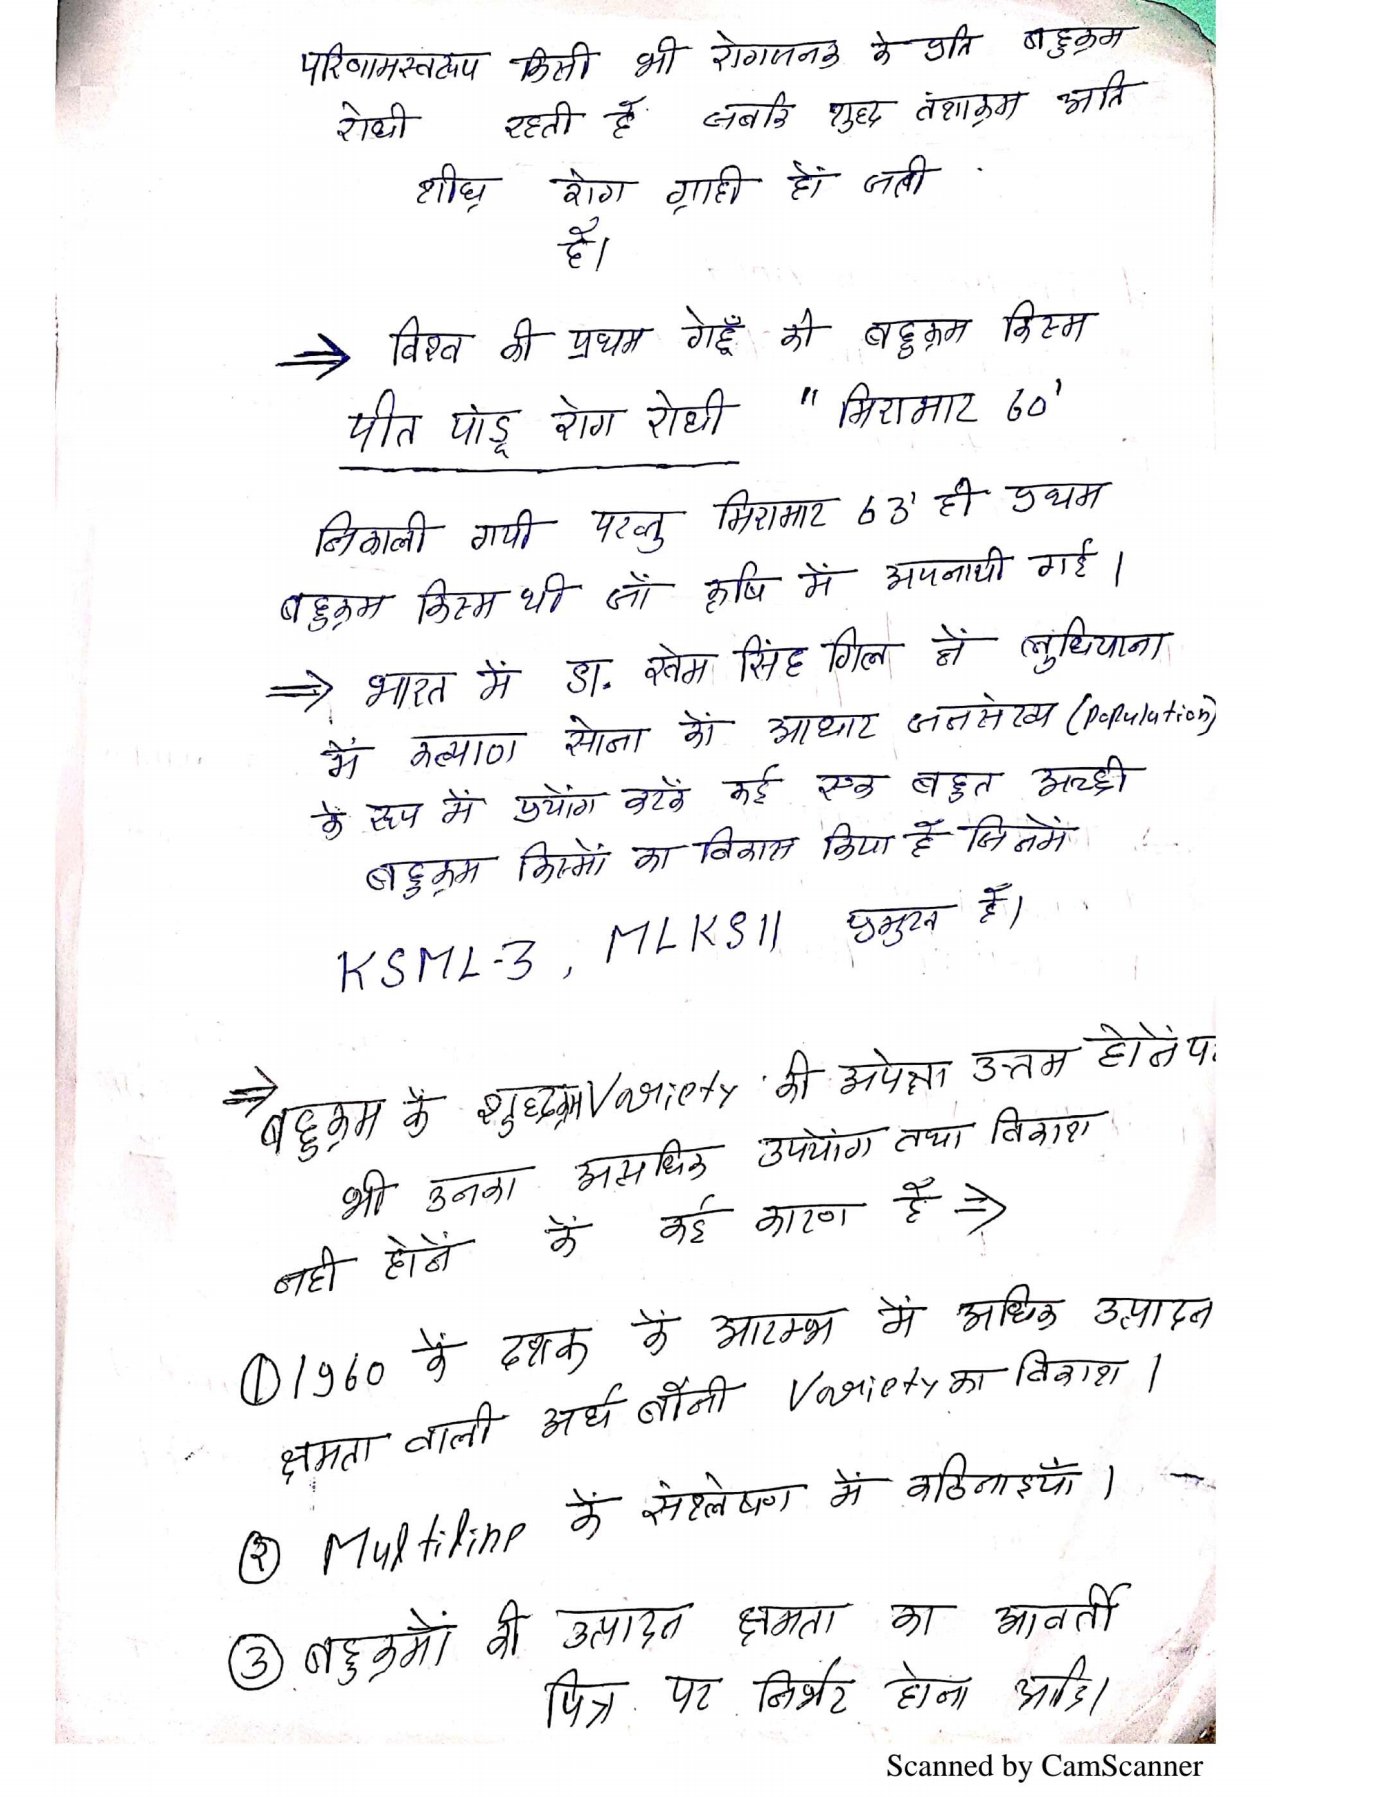 परिणामस्वरूप किसी भी रोगजनक के प्रति बहुक्रम
रोधी रहती हैं जबकि शुद्ध वंशाक्रम अति
शीघ्र रोग ग्राही हों जाती
हैं।
⇒ विश्व की प्रथम गेहूँ की बहुक्रम किस्म
पीत पांडू रोग रोधी " मिरामार 60'
निकाली गयी परन्तु मिरामार 63' ही प्रथम
बहुक्रम किस्म थी जों कृषि में अपनायी गई।
⇒ भारत में डा. खेम सिंह गिल नें लुधियाना
में कल्याण सोना कों आधार जनसंख्य (Population)
के रूप में प्रयोंग करकें कई एक बहुत अच्छी
बहुक्रम किस्मों का विकास किया हैं जिनमें
KSML-3, MLKS11 प्रमुख हैं।
⇒ बहुक्रम कें शुद्धक्रम Variety की अपेक्षा उत्तम होनें पर
भी उनका अत्यधिक उपयोंग तथा विकाश
नही होनें कें कई कारण हैं ⇒
① 1960 कें दशक कें आरम्भ में अधिक उत्पादन
क्षमता वाली अर्ध बौंनी Variety का विकाश।
② Multiline कें संश्लेषण में कठिनाइयाँ।
③ बहुक्रमों की उत्पादन क्षमता का आवर्ती
पित्र पर निर्भर होना आदि।
Scanned by CamScanner